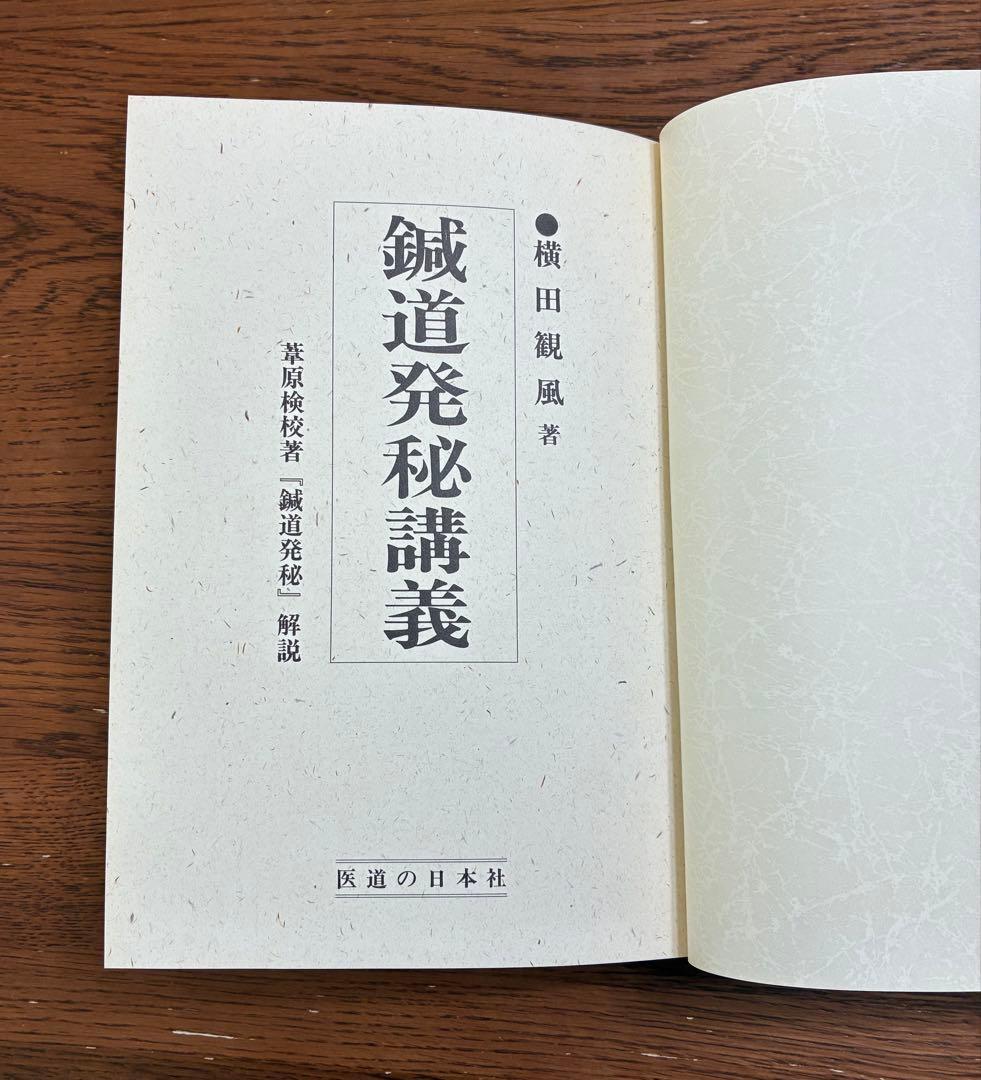 ●横田観風 著
鍼道発秘講義
葦原検校著『鍼道発秘』解説
医道の日本社